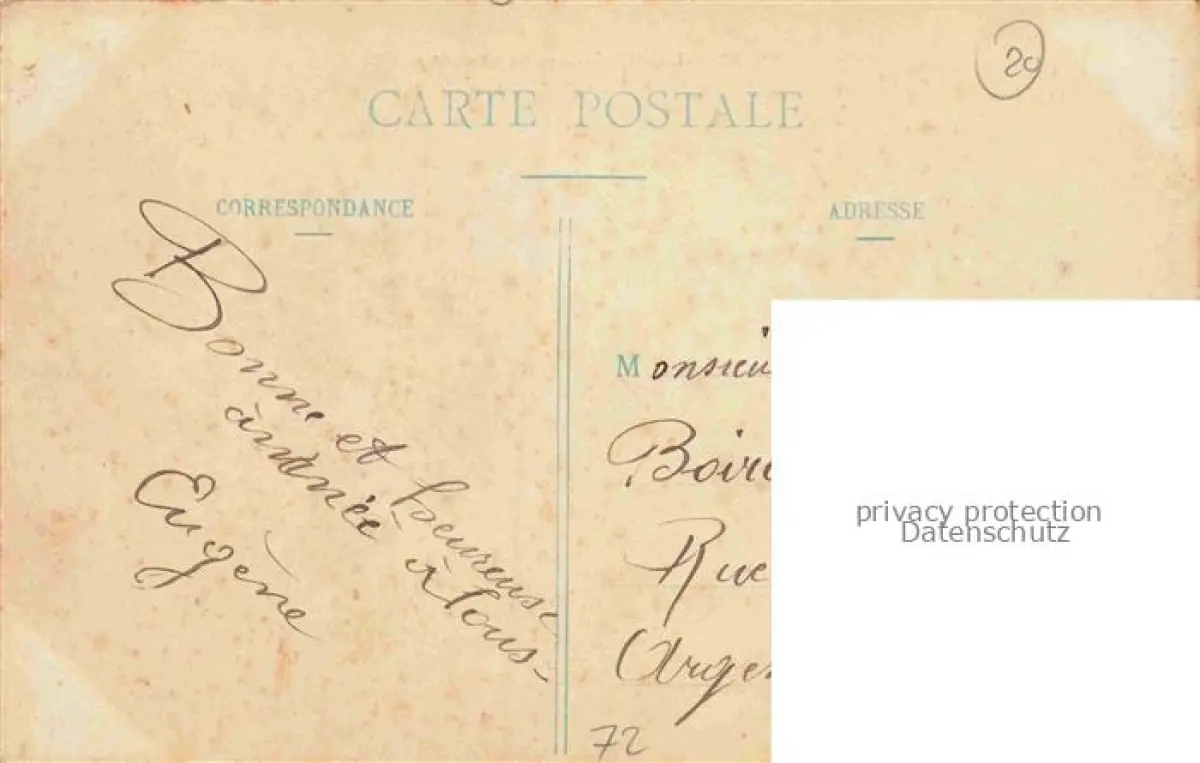 20
CARTE POSTALE
CORRESPONDANCE
ADRESSE
Bonne et heureuse
année à tous-
Eugène
Monsieu
Boir
Rue
Arge
72
privacy protection
Datenschutz